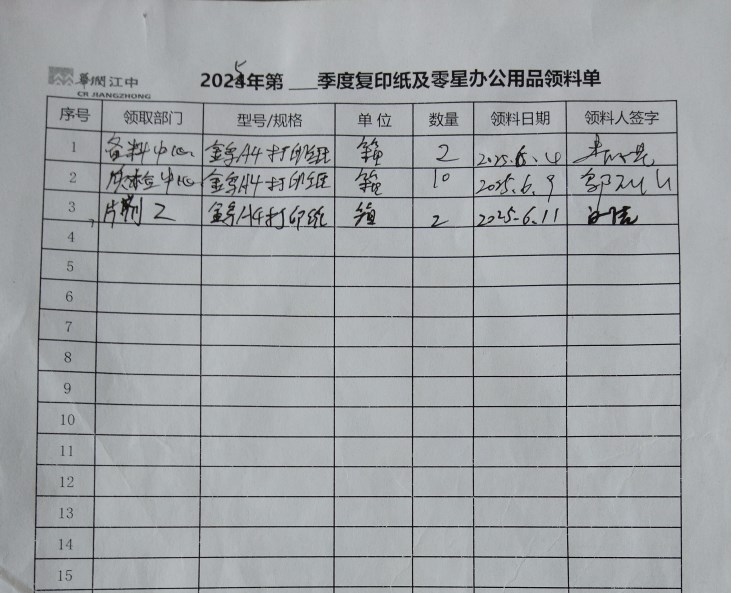 華潤江中
CR JIANGZHONG
2025年第___季度复印纸及零星办公用品领料单
序号 领取部门 型号/规格 单位 数量 领料日期 领料人签字
1 备料中心 A4打印纸 箱 2 2025.6.4
2 质检中心 A4打印纸 箱 10 2025.6.9
3 片剂2 A4打印纸 箱 2 2025.6.11
4
5
6
7
8
9
10
11
12
13
14
15